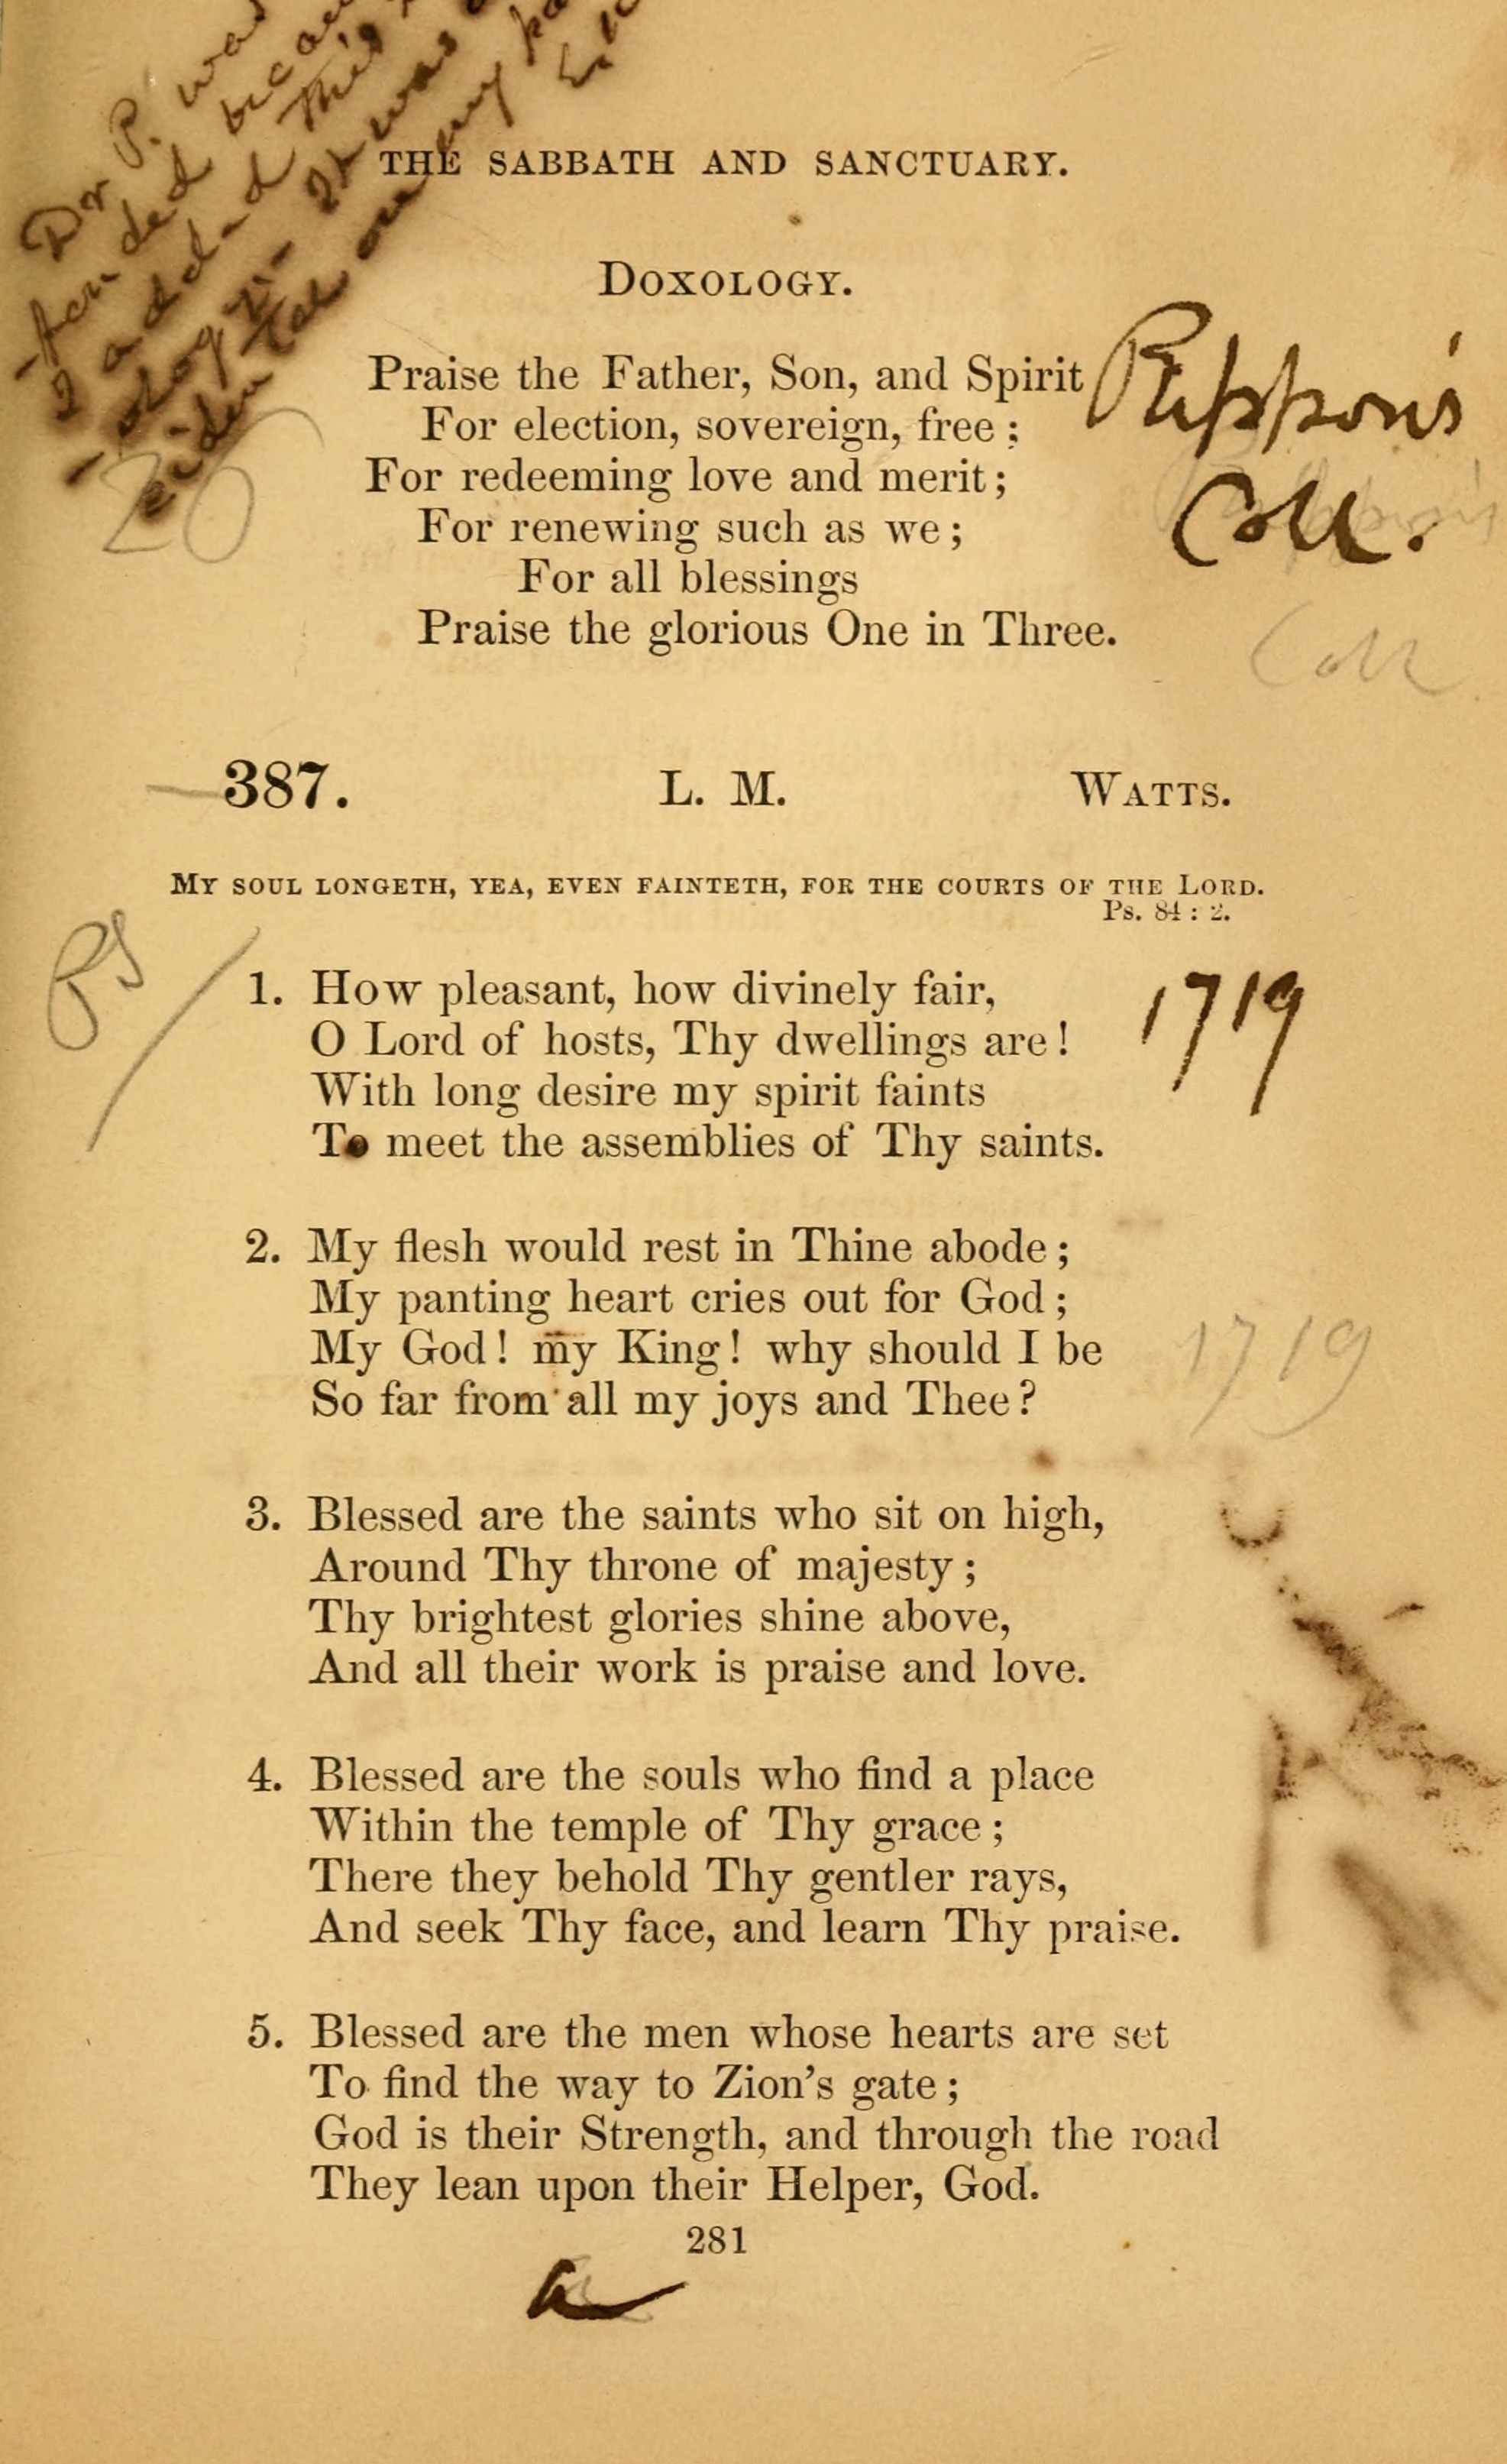 Dr P. was
-fended becau
I added this
-ology- It was
on my pa
THE SABBATH AND SANCTUARY.
DOXOLOGY.
Praise the Father, Son, and Spirit
For election, sovereign, free ;
For redeeming love and merit ;
For renewing such as we ;
For all blessings
Praise the glorious One in Three.
Rippon's
Coll.
20
Coll
387. L. M. WATTS.
MY SOUL LONGETH, YEA, EVEN FAINTETH, FOR THE COURTS OF THE LORD.
Ps. 84 : 2.
Ps
1. How pleasant, how divinely fair,
O Lord of hosts, Thy dwellings are !
With long desire my spirit faints
To meet the assemblies of Thy saints.
1719
2. My flesh would rest in Thine abode ;
My panting heart cries out for God ;
My God ! my King ! why should I be
So far from all my joys and Thee ?
1719
3. Blessed are the saints who sit on high,
Around Thy throne of majesty ;
Thy brightest glories shine above,
And all their work is praise and love.
4. Blessed are the souls who find a place
Within the temple of Thy grace ;
There they behold Thy gentler rays,
And seek Thy face, and learn Thy praise.
5. Blessed are the men whose hearts are set
To find the way to Zion's gate ;
God is their Strength, and through the road
They lean upon their Helper, God.
281
a